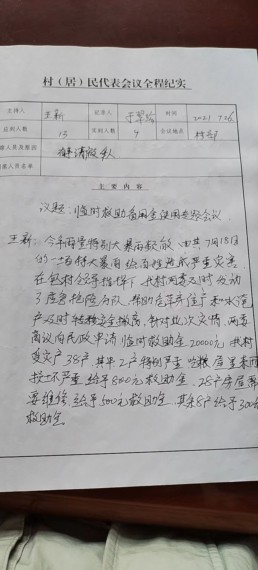 村（居）民代表会议全程纪实
主持人 王新 记录人 于翠玲 时间 2021.7.26
应到人数 13 实到人数 9 会议地点 村部
人员及原因
人员名单
主 要 内 容
议题：临时救助备用金使用专题会议
王新：今年雨量特别大暴雨较激，尤其7月18日
的一场特大暴雨给百姓造成严重灾害，
在包村领导指挥下，我村两委及时发动
了应急抢险分队，帮助危草房住户和水淹
户及时转移安全撤离，针对此次灾情，两委
商议向民政申请临时救助金20000元，我村
受灾户38户，其中2户特别严重
损坏严重，给予800元救助金，28户房屋需
要维修，给予500元救助金，其余8户给予300元
救助金。